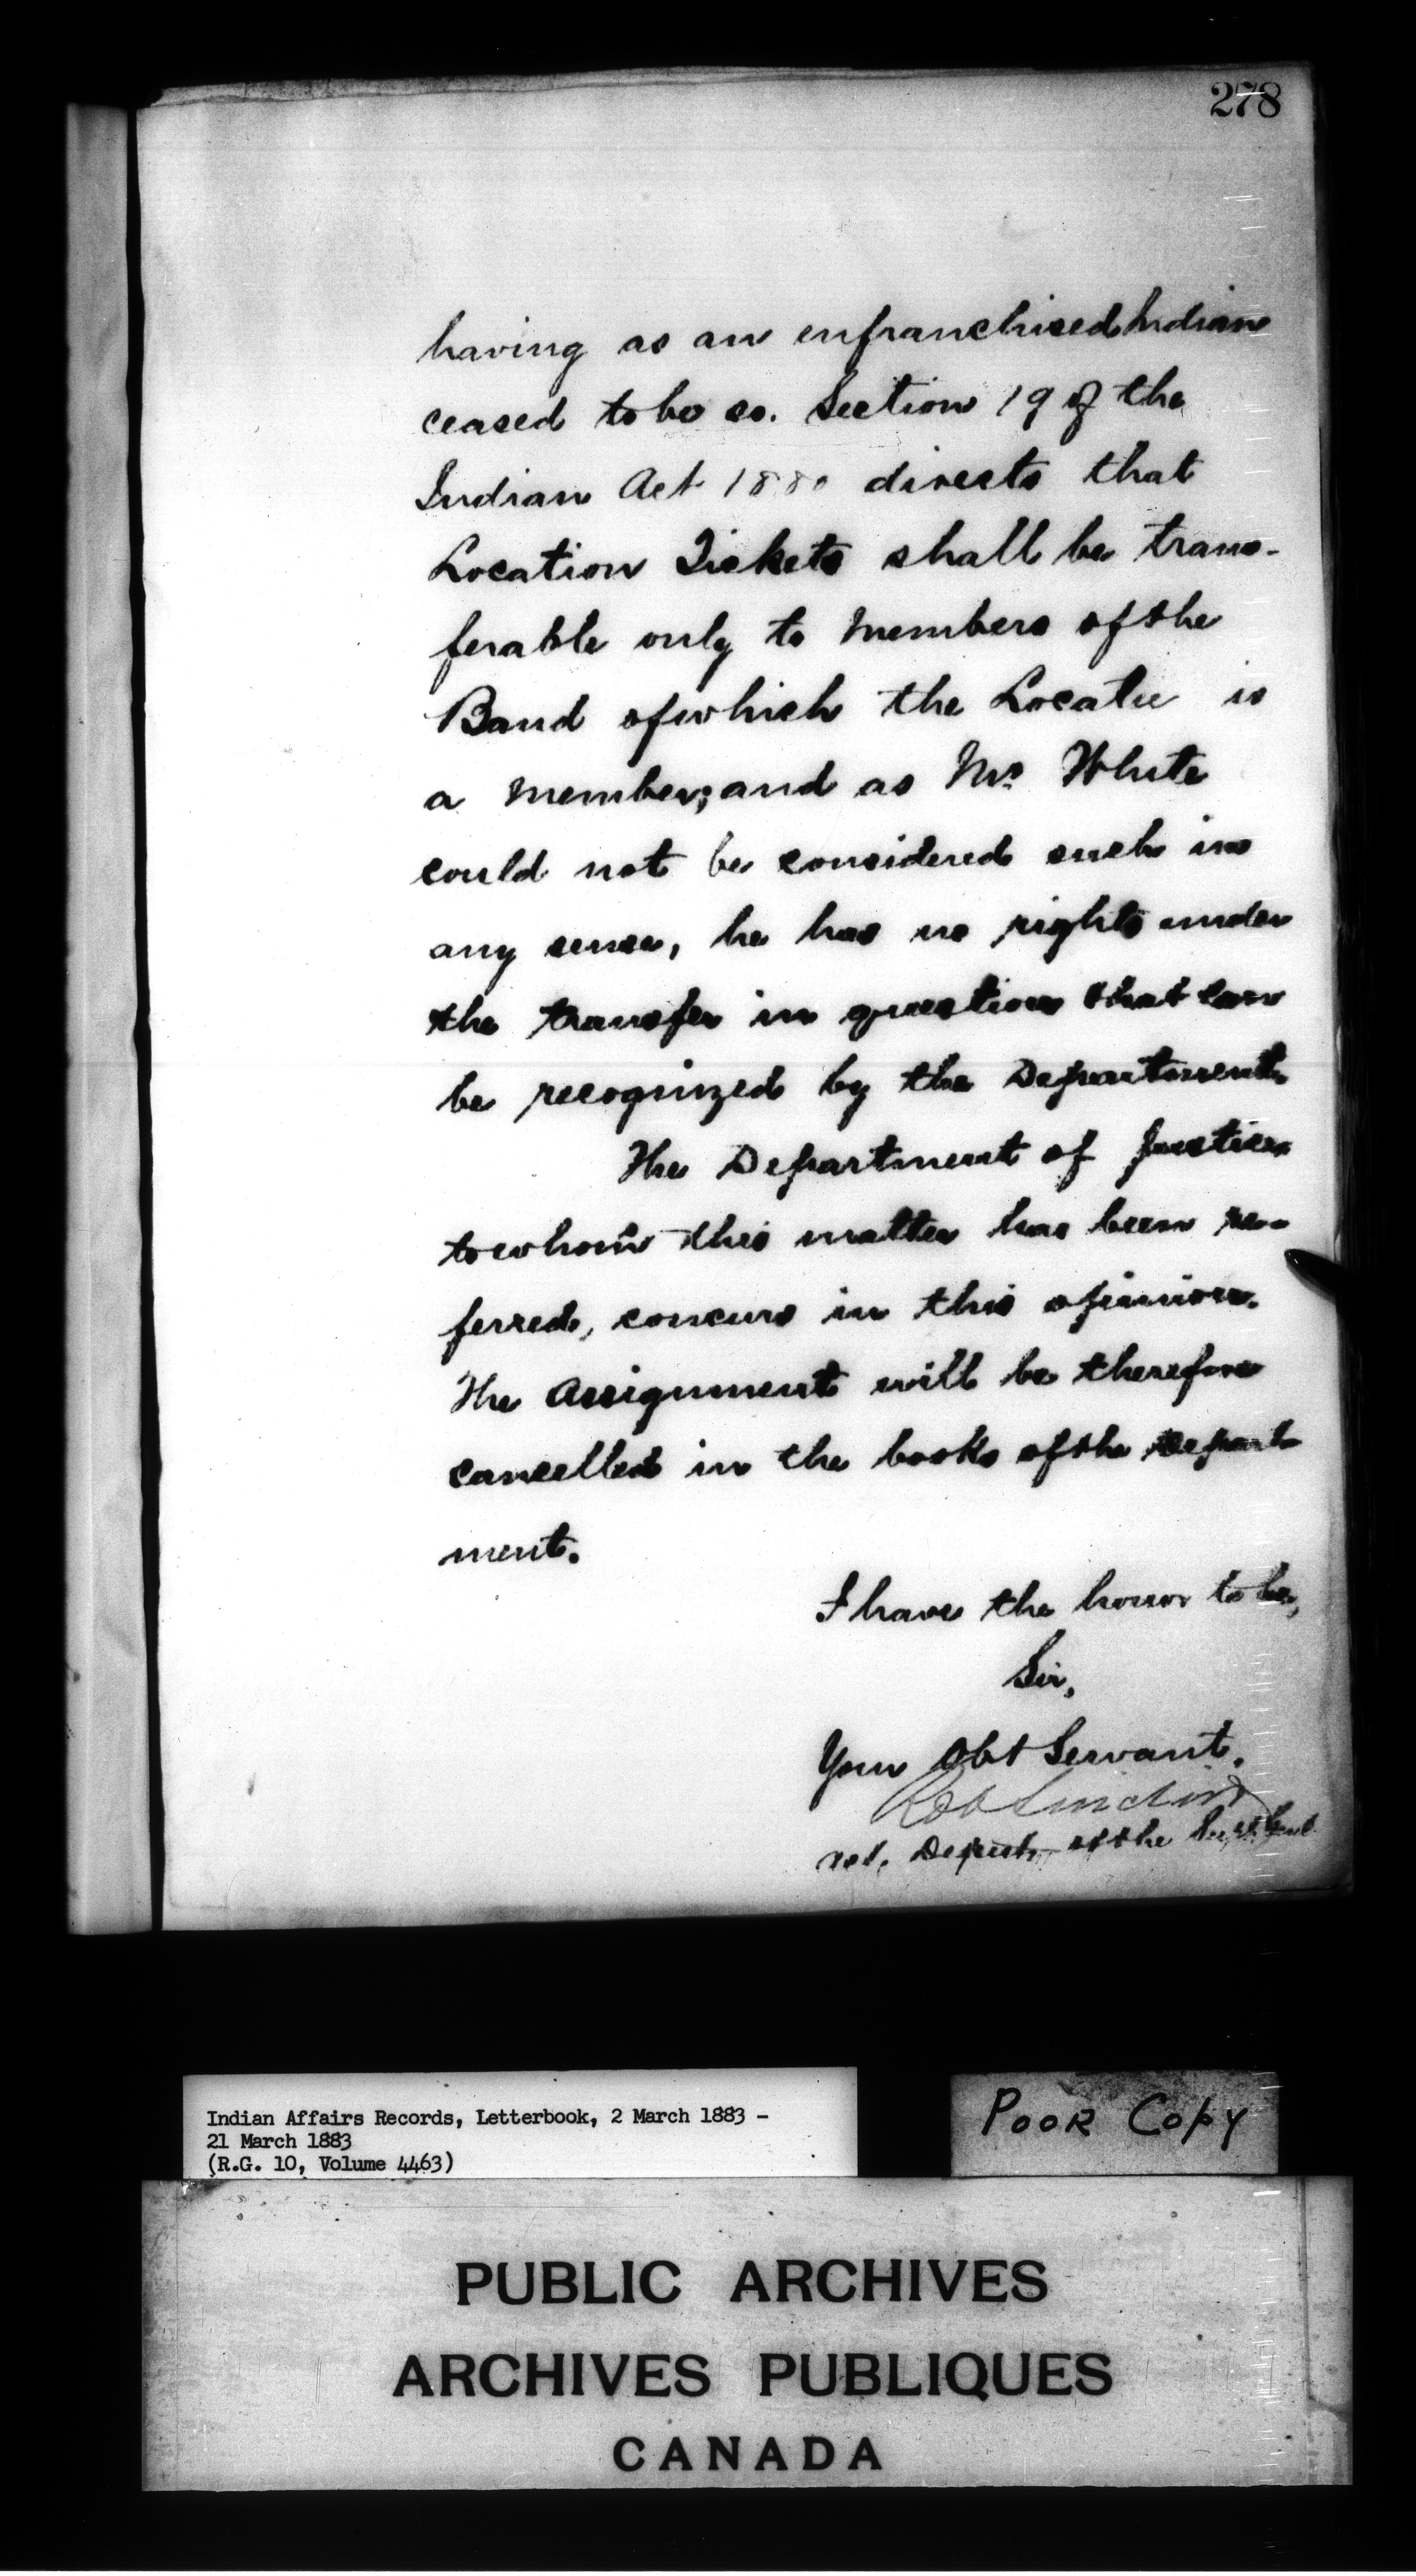 278
having as an enfranchised Indian
ceased to be so. Section 19 of the
Indian Act 1880 directs that
Location Tickets shall be trans-
ferable only to members of the
Band of which the Locatee is
a member; and as Mr. White
could not be considered such in
any sense, he has no rights under
the transfer in question that can
be recognized by the Department.
The Department of Justice
to whom this matter has been re-
ferred, concurs in this opinion.
The Assignment will be therefore
cancelled in the books of the Depart
ment.
I have the honor to be,
Sir,
Your Obt Servant.
Rob Sinclair
act. Deputy of the
Indian Affairs Records, Letterbook, 2 March 1883 -
21 March 1883
(R.G. 10, Volume 4463)
POOR COPY
PUBLIC ARCHIVES
ARCHIVES PUBLIQUES
CANADA